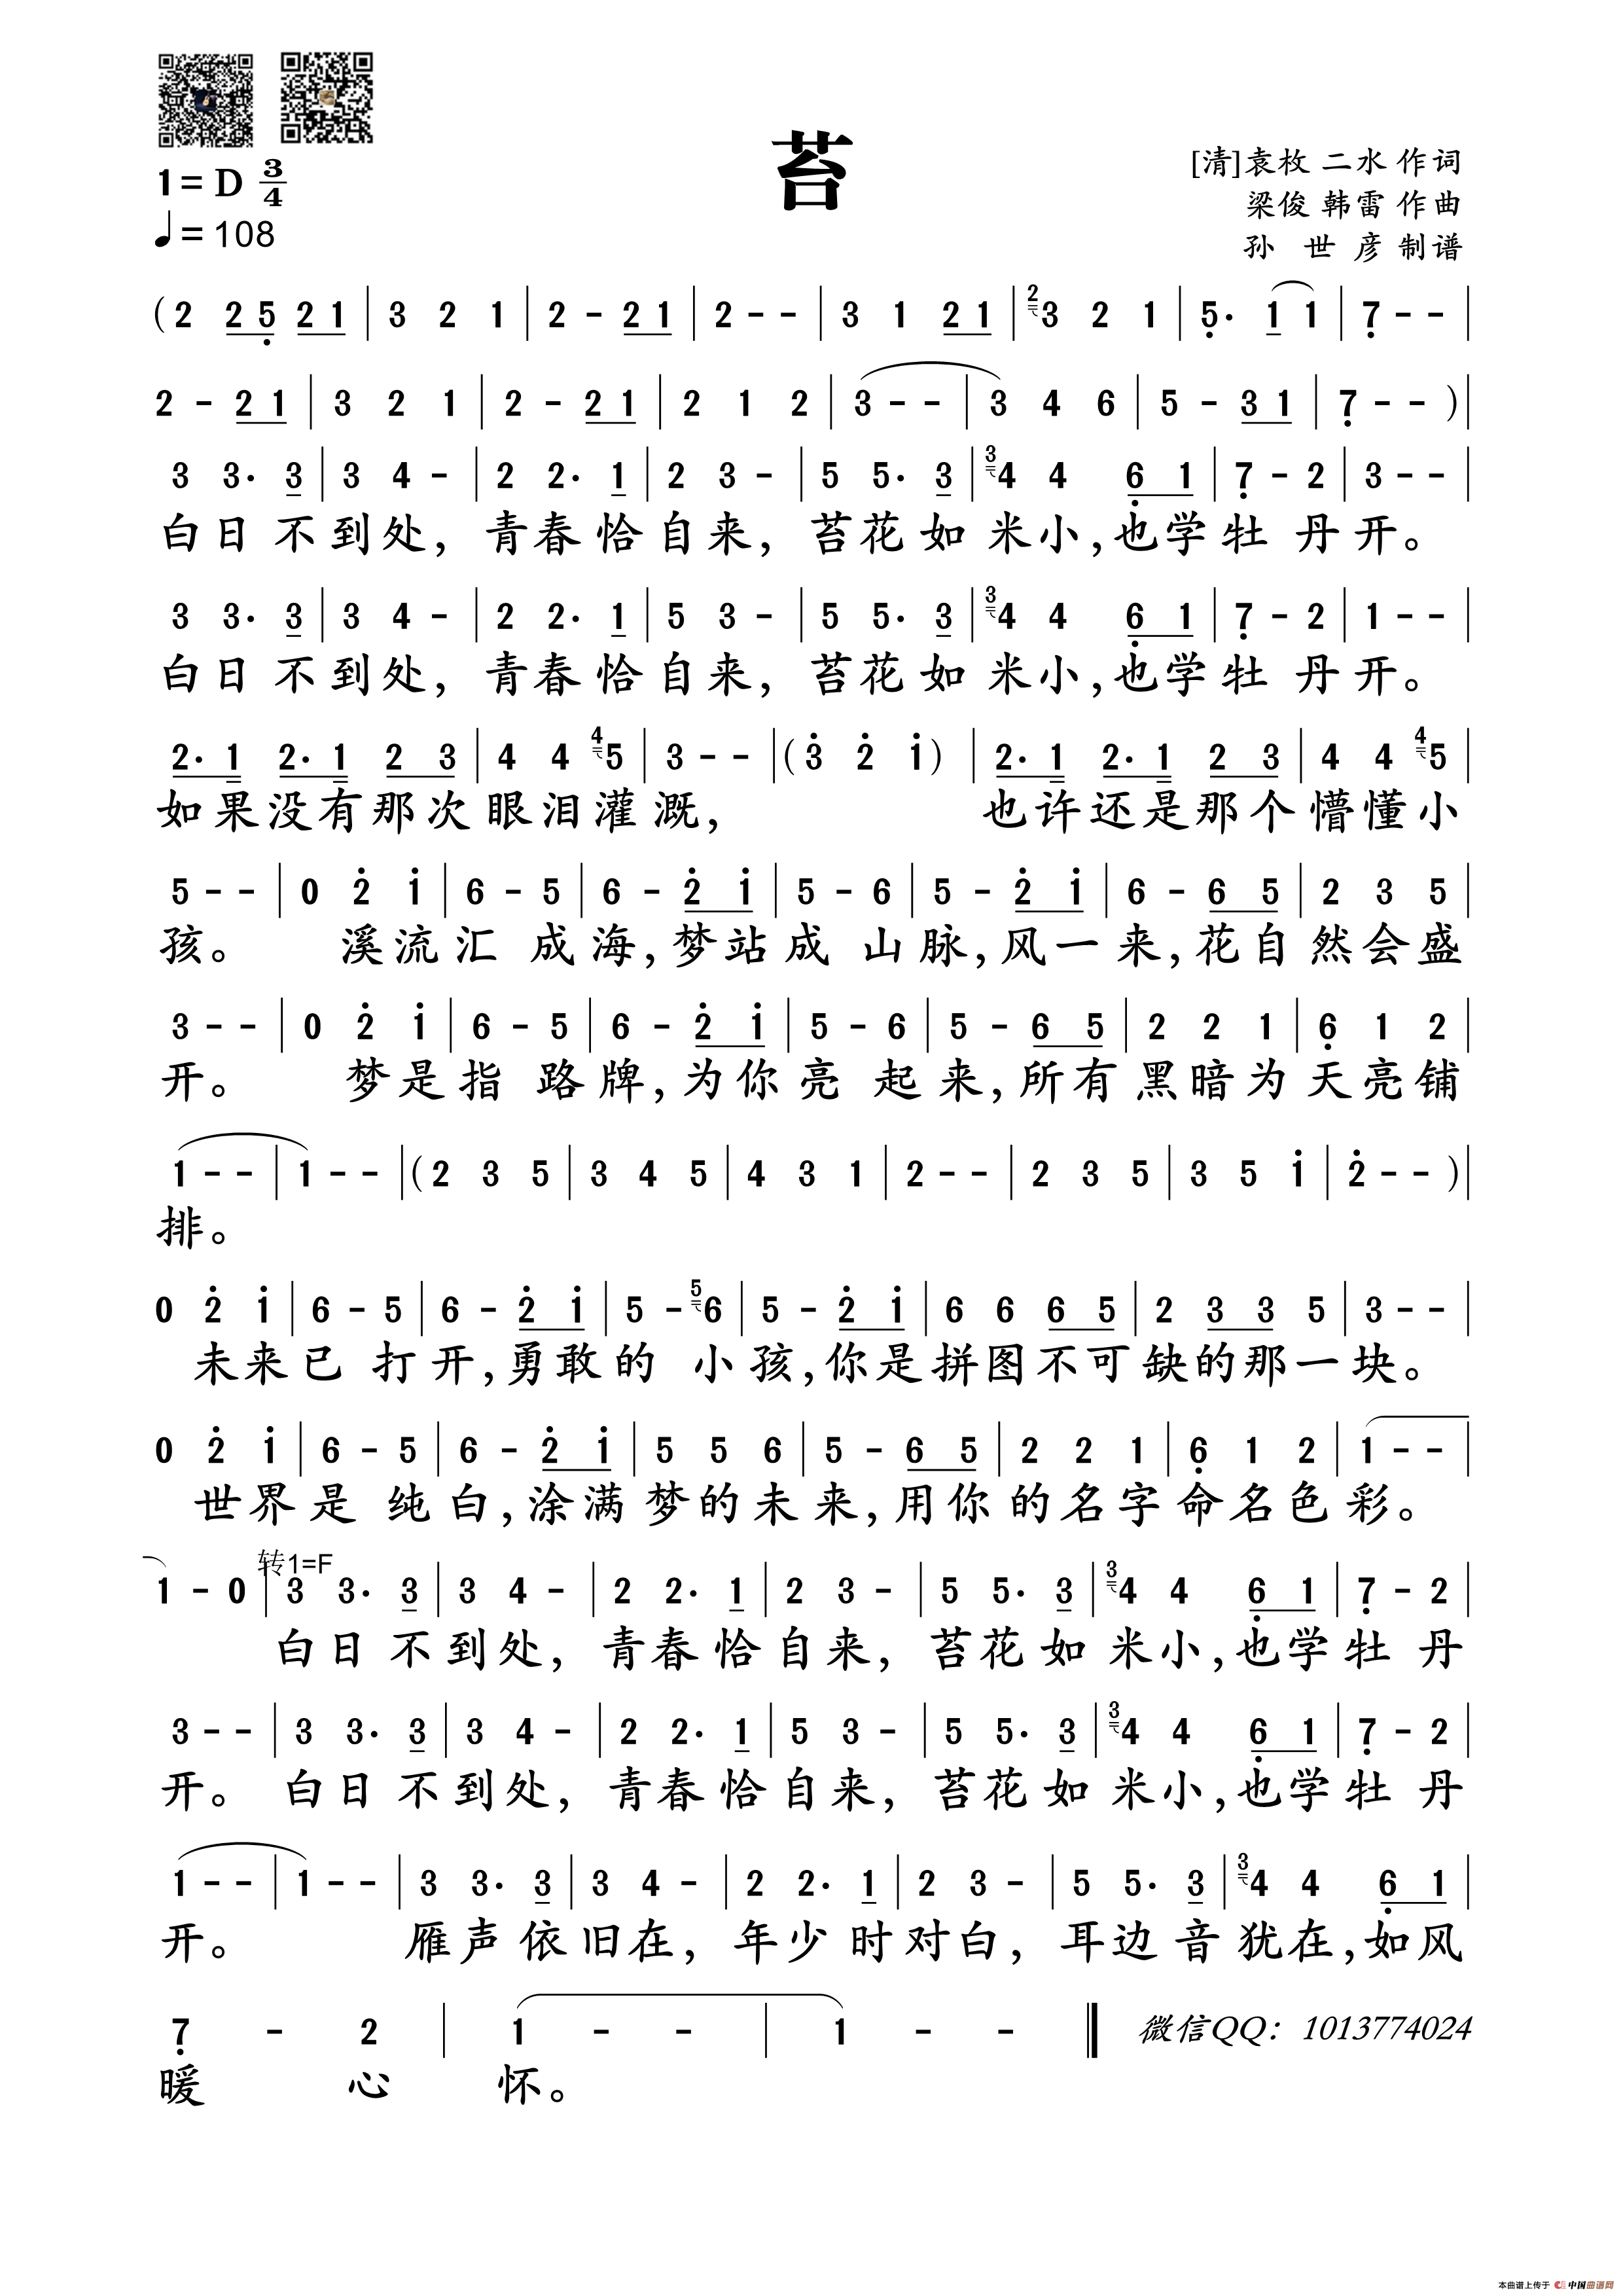 苔
[清]袁枚 二水 作词
1= D 3/4
梁俊 韩雷 作曲
♩= 108
孙 世 彦 制谱
( 2 2 5 2 1 | 3 2 1 | 2 - 2 1 | 2 - - | 3 1 2 1 | 2 3 2 1 | 5 · 1 1 | 7 - - |
2 - 2 1 | 3 2 1 | 2 - 2 1 | 2 1 2 | 3 - - | 3 4 6 | 5 - 3 1 | 7 - - ) |
3 3 · 3 | 3 4 - | 2 2 · 1 | 2 3 - | 5 5 · 3 | 3 4 4 6 1 | 7 - 2 | 3 - - |
白日不到处，青春恰自来，苔花如米小，也学牡丹开。
3 3 · 3 | 3 4 - | 2 2 · 1 | 5 3 - | 5 5 · 3 | 3 4 4 6 1 | 7 - 2 | 1 - - |
白日不到处，青春恰自来，苔花如米小，也学牡丹开。
2 · 1 2 · 1 2 3 | 4 4 4 5 | 3 - - | ( 3 2 1 ) | 2 · 1 2 · 1 2 3 | 4 4 4 5 |
如果没有那次眼泪灌溉， 也许还是那个懵懂小
5 - - | 0 2 1 | 6 - 5 | 6 - 2 1 | 5 - 6 | 5 - 2 1 | 6 - 6 5 | 2 3 5 |
孩。 溪流汇成海，梦站成山脉，风一来，花自然会盛
3 - - | 0 2 1 | 6 - 5 | 6 - 2 1 | 5 - 6 | 5 - 6 5 | 2 2 1 | 6 1 2 |
开。 梦是指路牌，为你亮起来，所有黑暗为天亮铺
1 - - | 1 - - | ( 2 3 5 | 3 4 5 | 4 3 1 | 2 - - | 2 3 5 | 3 5 1 | 2 - - ) |
排。
0 2 1 | 6 - 5 | 6 - 2 1 | 5 - 5 6 | 5 - 2 1 | 6 6 6 5 | 2 3 3 5 | 3 - - |
未来已打开，勇敢的小孩，你是拼图不可缺的那一块。
0 2 1 | 6 - 5 | 6 - 2 1 | 5 5 6 | 5 - 6 5 | 2 2 1 | 6 1 2 | 1 - - |
世界是纯白，涂满梦的未来，用你的名字命名色彩。
转1=F
1 - 0 | 3 3 · 3 | 3 4 - | 2 2 · 1 | 2 3 - | 5 5 · 3 | 3 4 4 6 1 | 7 - 2 |
白日不到处，青春恰自来，苔花如米小，也学牡丹
3 - - | 3 3 · 3 | 3 4 - | 2 2 · 1 | 5 3 - | 5 5 · 3 | 3 4 4 6 1 | 7 - 2 |
开。白日不到处，青春恰自来，苔花如米小，也学牡丹
1 - - | 1 - - | 3 3 · 3 | 3 4 - | 2 2 · 1 | 2 3 - | 5 5 · 3 | 3 4 4 6 1 |
开。 雁声依旧在，年少时对白，耳边音犹在，如风
7 - 2 | 1 - - | 1 - - ‖
微信QQ：1013774024
暖心怀。
本曲谱上传于 中国曲谱网